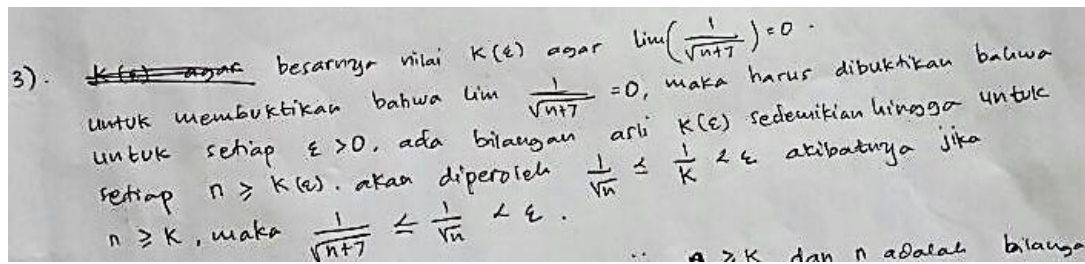 3). besarnya nilai K(ε) agar lim(1/√n+7)=0.
untuk membuktikan bahwa lim 1/√n+7 =0, maka harus dibuktikan bahwa
untuk setiap ε >0, ada bilangan asli K(ε) sedemikian hingga untuk
setiap n ≥ K(ε). akan diperoleh 1/√n ≤ 1/K < ε akibatnya jika
n ≥ K, maka 1/√n+7 ≤ 1/√n < ε.
n ≥ K dan n adalah bilanga